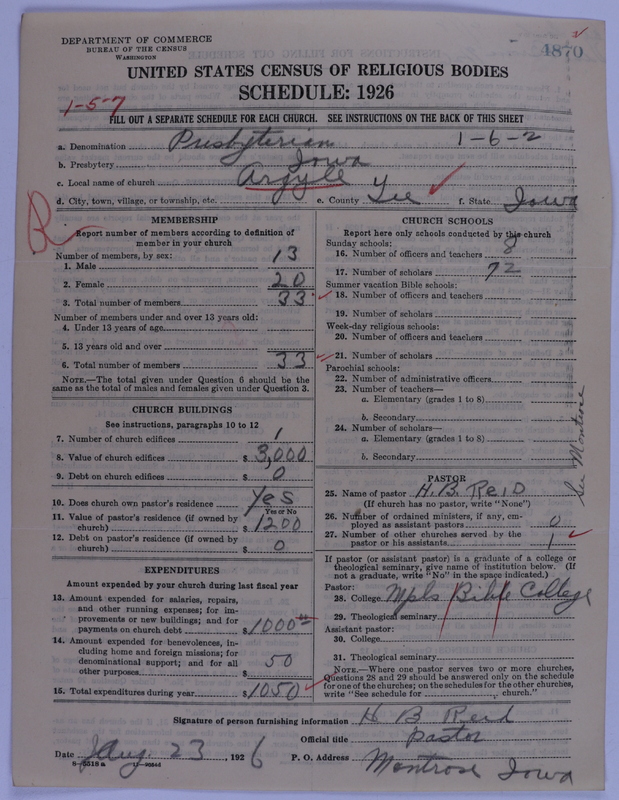 DEPARTMENT OF COMMERCE
BUREAU OF THE CENSUS
WASHINGTON
4870
UNITED STATES CENSUS OF RELIGIOUS BODIES
SCHEDULE: 1926
1-5-7
FILL OUT A SEPARATE SCHEDULE FOR EACH CHURCH. SEE INSTRUCTIONS ON THE BACK OF THIS SHEET
a. Denomination Presbyterian 1-6-2
b. Presbytery Iowa
c. Local name of church Argyle
d. City, town, village, or township, etc. e. County Lee f. State Iowa
R
MEMBERSHIP
Report number of members according to definition of
member in your church
Number of members, by sex:
1. Male 13
2. Female 20
3. Total number of members 33
Number of members under and over 13 years old:
4. Under 13 years of age
5. 13 years old and over
6. Total number of members 33
NOTE.—The total given under Question 6 should be the
same as the total of males and females given under Question 3.
CHURCH BUILDINGS
See instructions, paragraphs 10 to 12
7. Number of church edifices 1
8. Value of church edifices $ 3,000
9. Debt on church edifices $ 0
10. Does church own pastor's residence Yes
Yes or No
11. Value of pastor's residence (if owned by
church) $ 1200
12. Debt on pastor's residence (if owned by
church) $ 0
EXPENDITURES
Amount expended by your church during last fiscal year
13. Amount expended for salaries, repairs,
and other running expenses; for im-
provements or new buildings; and for
payments on church debt $ 1000
14. Amount expended for benevolences, in-
cluding home and foreign missions; for
denominational support; and for all
other purposes $ 50
15. Total expenditures during year $ 1050
CHURCH SCHOOLS
Report here only schools conducted by this church
Sunday schools:
16. Number of officers and teachers 8
17. Number of scholars 72
Summer vacation Bible schools:
18. Number of officers and teachers
19. Number of scholars
Week-day religious schools:
20. Number of officers and teachers
21. Number of scholars
Parochial schools:
22. Number of administrative officers
23. Number of teachers—
a. Elementary (grades 1 to 8)
b. Secondary
24. Number of scholars—
a. Elementary (grades 1 to 8)
b. Secondary
See Montrose
PASTOR
25. Name of pastor H. B. Reid
(If church has no pastor, write "None")
26. Number of ordained ministers, if any, em-
ployed as assistant pastors 0
27. Number of other churches served by the
pastor or his assistants 1
If pastor (or assistant pastor) is a graduate of a college or
theological seminary, give name of institution below. (If
not a graduate, write "No" in the space indicated.)
Pastor:
28. College Mpls Bible College
29. Theological seminary
Assistant pastor:
30. College
31. Theological seminary
NOTE.—Where one pastor serves two or more churches,
Questions 28 and 29 should be answered only on the schedule
for one of the churches; on the schedules for the other churches,
write "See schedule for church."
Signature of person furnishing information H B Reid
Official title Pastor
Date Aug. 23, 1926 P. O. Address Montrose Iowa